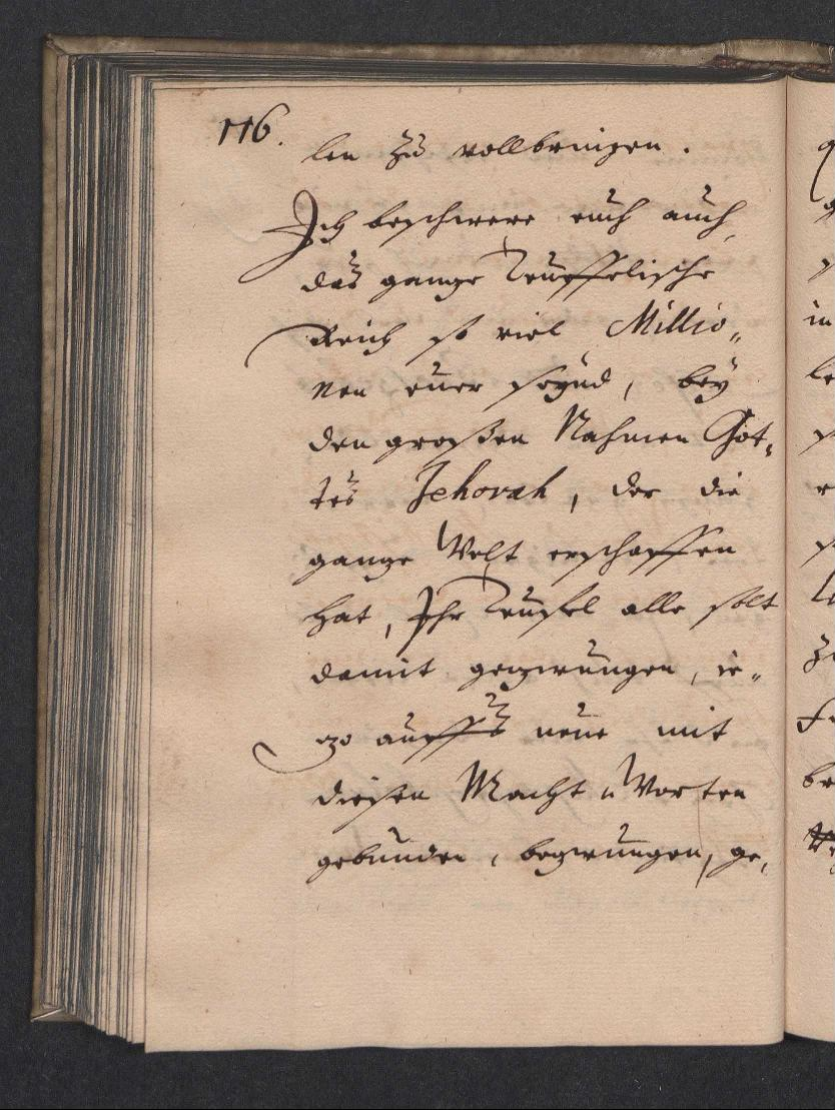 116.
len zu vollbringen.
Ich beschwere euch auch,
das gantze Teuffelische
Reich so viel Millio„
nen euer seynd, bey
den großen Nahmen Got„
tes Jehovah, der die
gantze Welt erschaffen
hat, Ihr Teufel alle solt
damit gezwungen, ie„
tzo auffs neue mit
diesen Macht u Worten
gebunden, bezwungen, ge„